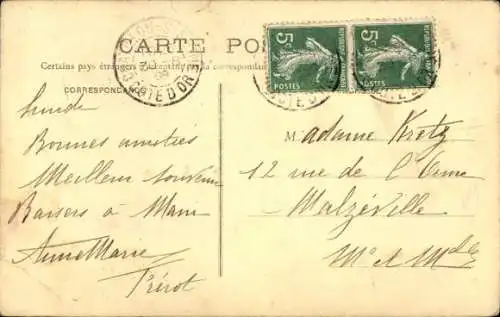 CARTE PO
Certains pays étrangers n'acceptent pas la correspondan
CORRESPONDANCE
5c 5c
POSTES POSTES
COTE D'OR
Lundi
Bonnes amitiés
Meilleur souvenir
Baisers à Mami
Anne Marie
Pérot
Madame Kretz
12 rue de l'Orme
Malzéville
M et Mlle